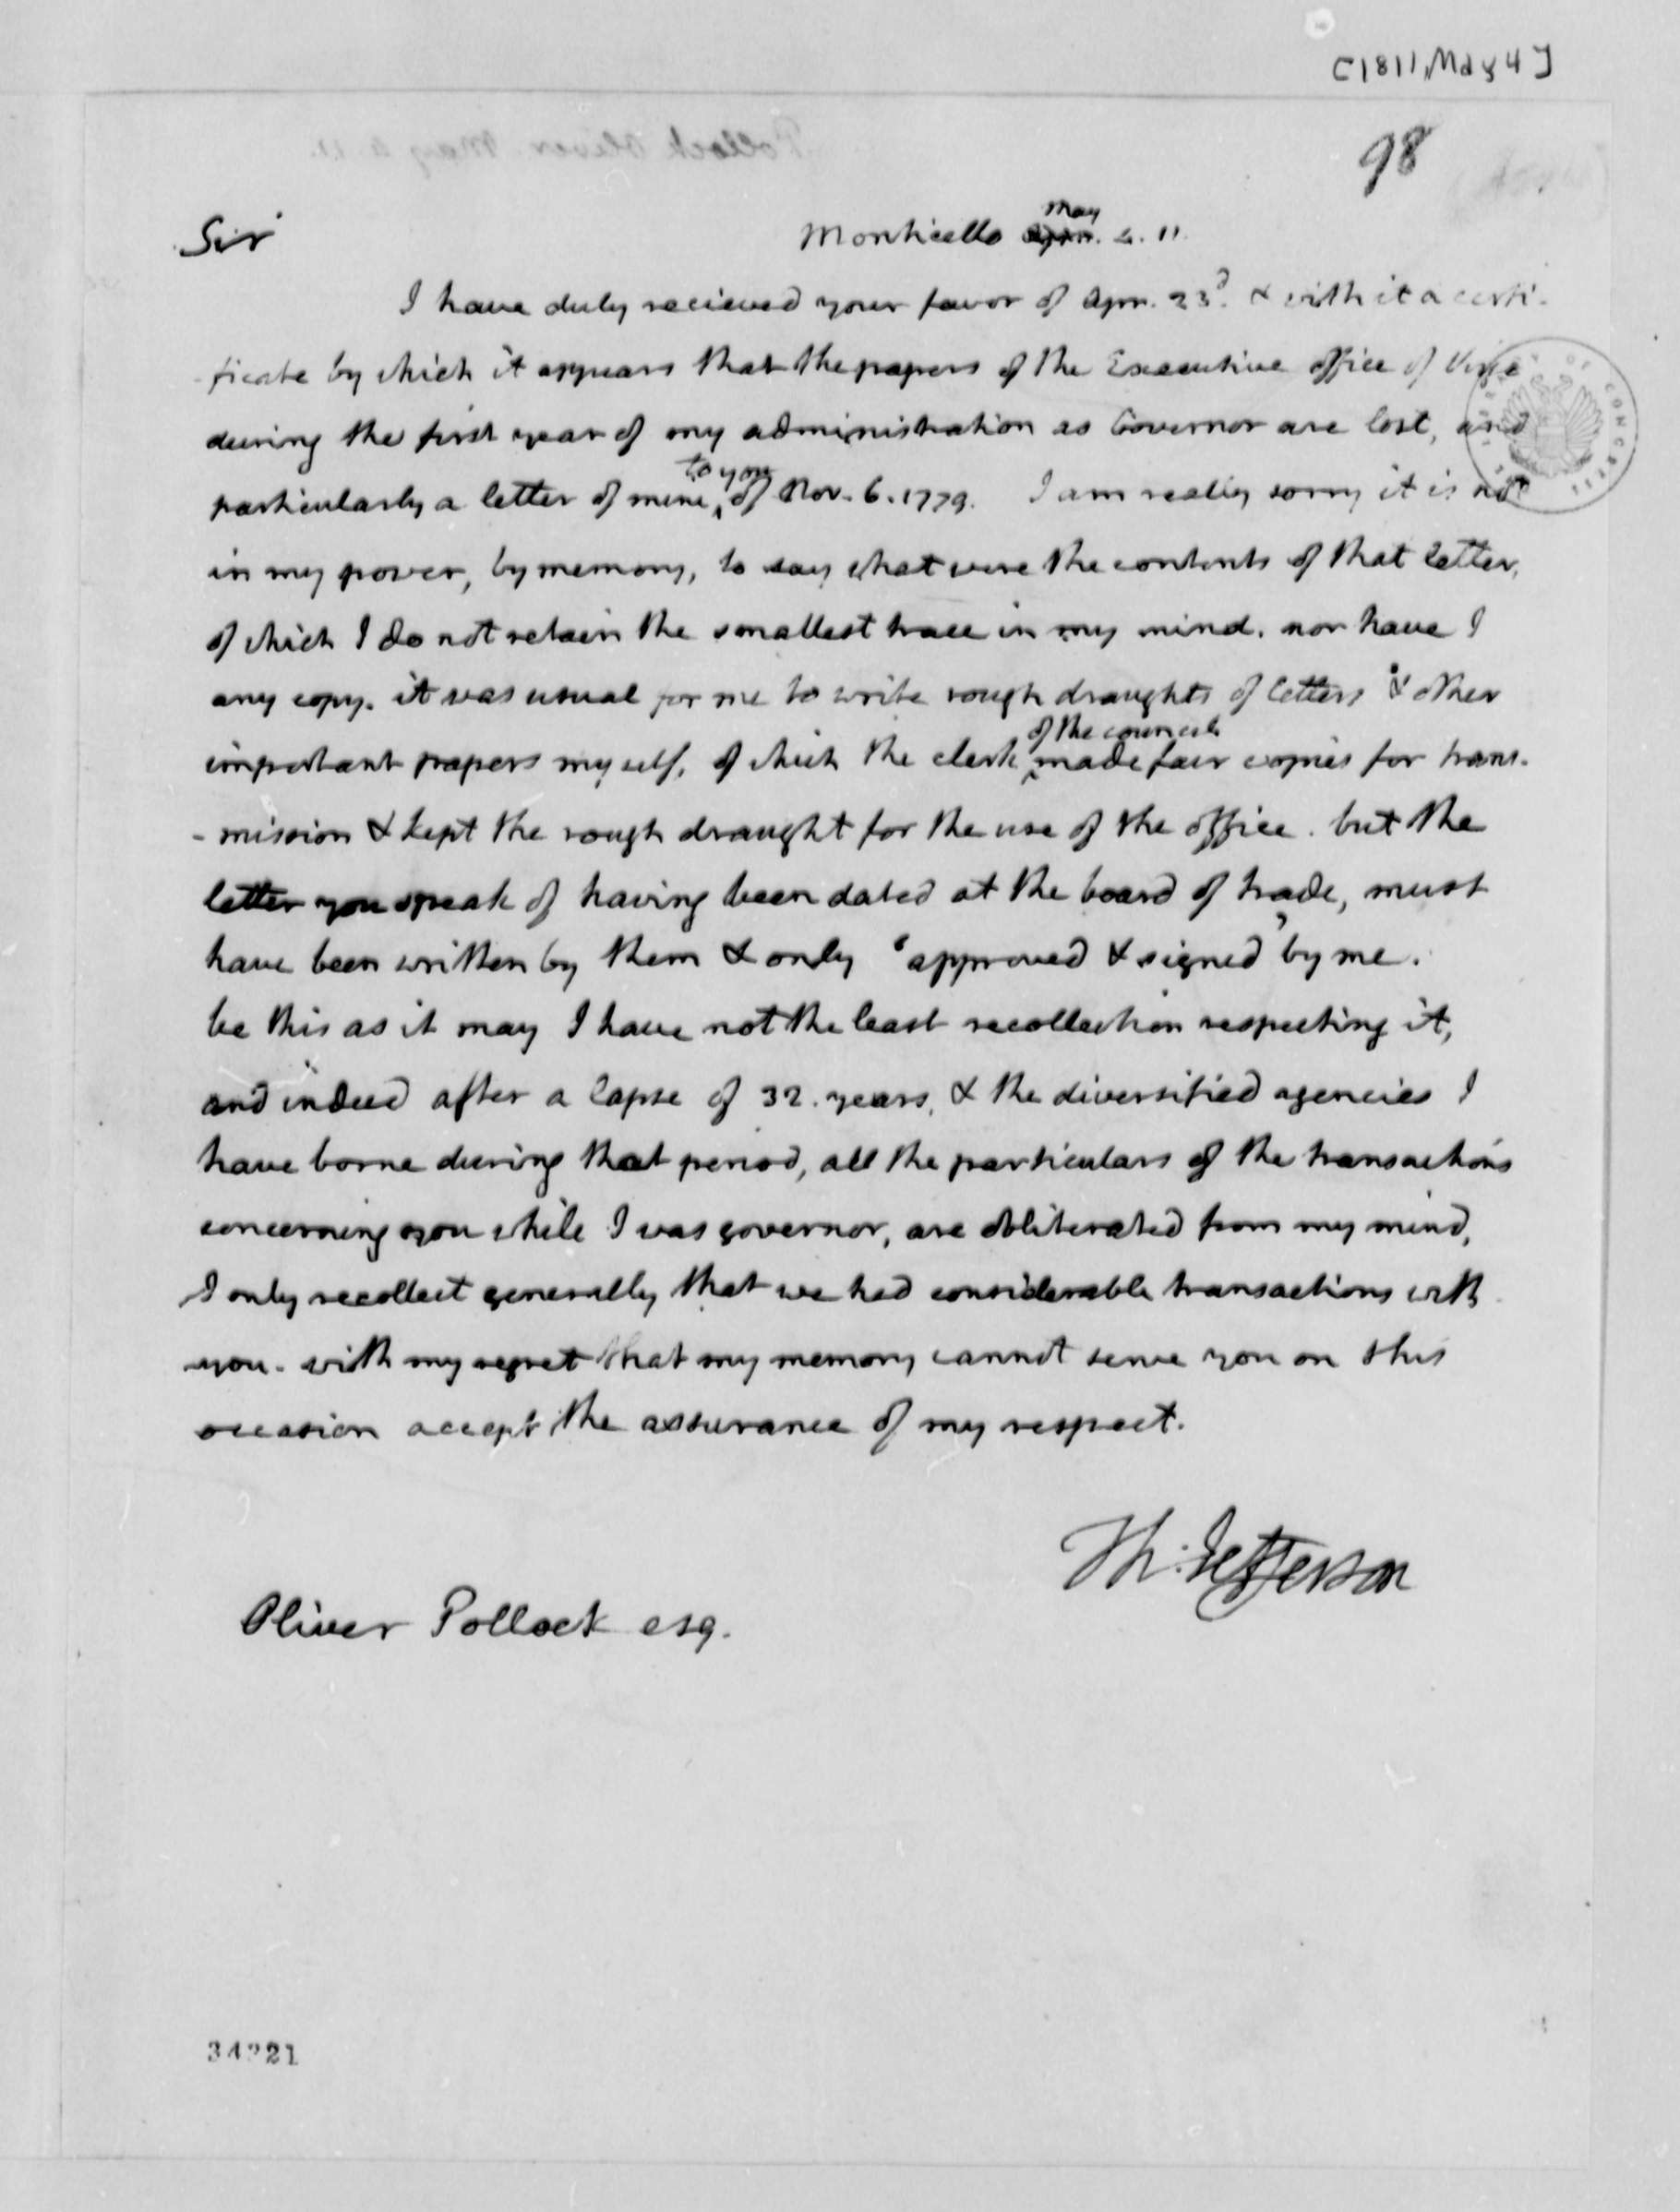 [1811, May 4]
98
Sir
Monticello Apr. May 4. 11.
I have duly recieved your favor of Apr. 23d. & with it a certi-
-ficate by which it appears that the papers of the Executive office of Virga
during the first year of my administration as Governor are lost, and
particularly a letter of mine to you of Nov. 6. 1779. I am really sorry it is not
in my power, by memory, to say what were the contents of that letter,
of which I do not retain the smallest trace in my mind. nor have I
any copy. it was usual for me to write rough draughts of letters & other
important papers myself, of which the clerk of the council made fair copies for trans-
-mission & kept the rough draught for the use of the office. but the
letter you speak of having been dated at the board of trade, must
have been written by them & only 'approved & signed' by me.
be this as it may I have not the least recollection respecting it,
and indeed after a lapse of 32. years, & the diversified agencies I
have borne during that period, all the particulars of the transactions
concerning you while I was governor, are obliterated from my mind,
I only recollect generally that we had considerable transactions with
you. with my regret that my memory cannot serve you on this
occasion accept the assurance of my respect.
Th: Jefferson
Oliver Pollock esq.